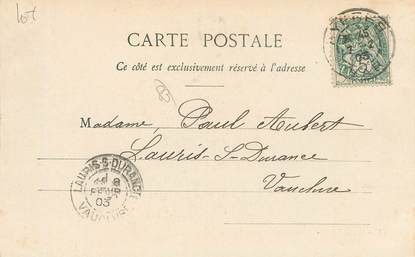 lot
CARTE POSTALE
Ce côté est exclusivement réservé à l'adresse
Madame, Paul Aubert
Lauris-S-Durance
Vaucluse
LAURIS-S-DURANCE
03
VAUCLUSE